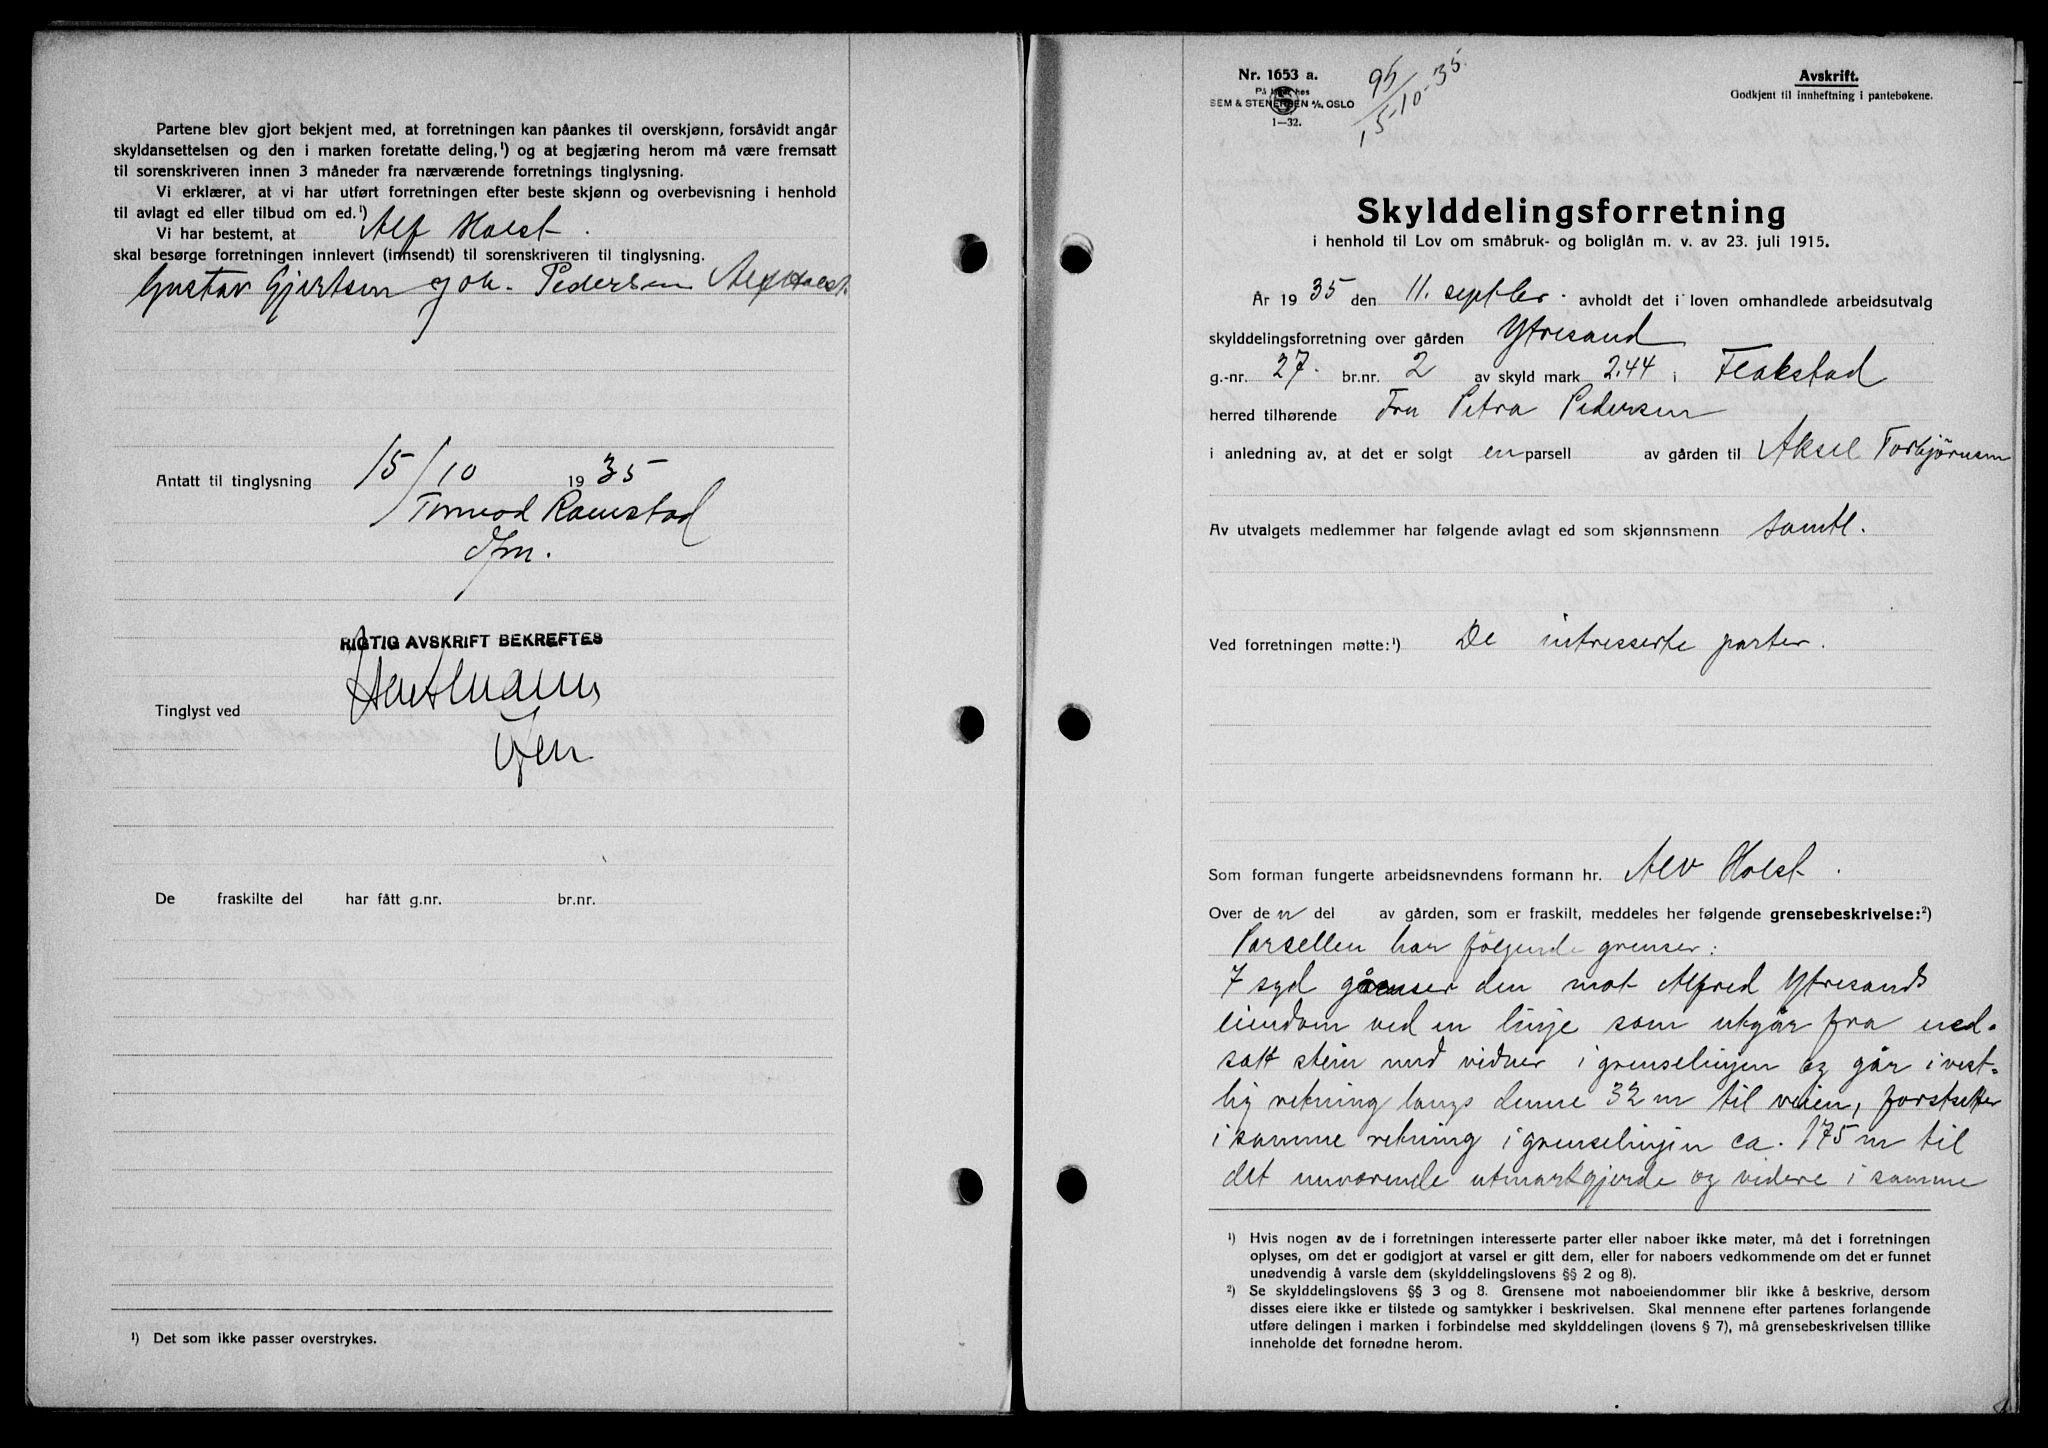 Partene blev gjort bekjent med, at forretningen kan påankes til overskjønn, forsåvidt angår
skyldansettelsen og den i marken foretatte deling,¹) og at begjæring herom må være fremsatt
til sorenskriveren innen 3 måneder fra nærværende forretnings tinglysning.
Vi erklærer, at vi har utført forretningen efter beste skjønn og overbevisning i henhold
til avlagt ed eller tilbud om ed.¹)
Vi har bestemt, at Alf Holst.
skal besørge forretningen innlevert (innsendt) til sorenskriveren til tinglysning.
Gustav Gjertsen Joh. Pedersen Alf Holst.
Antatt til tinglysning 15/10 1935
Tormod Ramstad
RIGTIG AVSKRIFT BEKREFTES
Tinglyst ved
De fraskilte del har fått g.nr. br.nr.
¹) Det som ikke passer overstrykes.
Nr. 1653 a.
På lager hos
SEM & STENERSEN A/S, OSLO
1—32.
95/
15-10-35.
Avskrift.
Godkjent til innheftning i pantebøkene.
Skylddelingsforretning
i henhold til Lov om småbruk- og boliglån m. v. av 23. juli 1915.
År 1935 den 11. septbr. avholdt det i loven omhandlede arbeidsutvalg
skylddelingsforretning over gården Ytresand
g.-nr. 27. br.nr. 2 av skyld mark 2.44 i Flakstad
herred tilhørende Fru Petra Pedersen
i anledning av, at det er solgt en parsell av gården til Aksel Torbjørnsen
Av utvalgets medlemmer har følgende avlagt ed som skjønnsmenn samtl.
Ved forretningen møtte:¹) De intresserte parter.
Som forman fungerte arbeidsnevndens formann hr. Alv Holst.
Over den del av gården, som er fraskilt, meddeles her følgende grensebeskrivelse:²)
Parsellen har følgende grenser:
I syd grenser den mot Alfred Ytresands
eiendom ved en linje som utgår fra ned-
satt stein med vidner i grenselinjen og går i vest-
lig retning langs denne 32 m til veien, fortsetter
i samme retning i grenselinjen ca. 175 m til
det nuværende utmarkgjerde og videre i samme
¹) Hvis nogen av de i forretningen interesserte parter eller naboer ikke møter, må det i forretningen
oplyses, om det er godtgjort at varsel er gitt dem, eller for naboers vedkommende om det er funnet
unødvendig å varsle dem (skylddelingslovens §§ 2 og 8).
²) Se skylddelingslovens §§ 3 og 8. Grensene mot naboeiendommer blir ikke å beskrive, dersom
disses eiere ikke er tilstede og samtykker i beskrivelsen. Skal mennene efter partenes forlangende
utføre delingen i marken i forbindelse med skylddelingen (lovens § 7), må grensebeskrivelsen tillike
inneholde det fornødne herom.